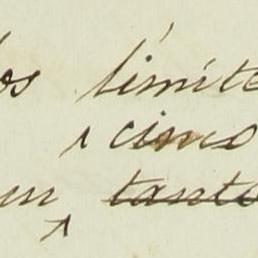 os límite
cimo
un tanto